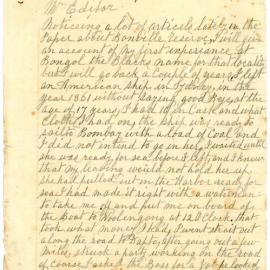 Mr Editor
Noticeing a lot of articals lately in the
Paper about Bomville Reserve, I will give
an account of My first experiance, at
Bongol the Blacks name for that locality
but I will go back a Couple of years, I left
an American Ship in Sydney, in the
year 1861 without Saying good Bye, at the
age of 17 years, I had 15/ in Cash and what
Clothes I had on, the Ship was ready to
sail to Bombay with a load of Coal and I
did not intend to go in her, I waited until
she was ready for sea before I left, and I knew
that my leaving would not hold her up
she had put out in the Harbor ready for
sea I had made it right with a waterman
to take me off and put me on board of
the Boat to Woolongong at 12 O'clock, that
took what money I had, I went strait out
along the road to Dapto, after going out a few
Miles, struck a party working on the road
of coarse I asked the Boss for a Job he looked